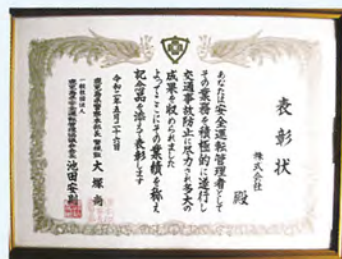 表彰状
株式会社
殿
あなたは安全運転管理者として
その業務を積極的に遂行し
交通事故防止に尽力され多大の
成果を収められました
よってここにその業績を称え
記念品を添えて表彰します
令和二年五月二十六日
鹿児島県警察本部長 警視監 大塚 尚
一般社団法人
池田安則